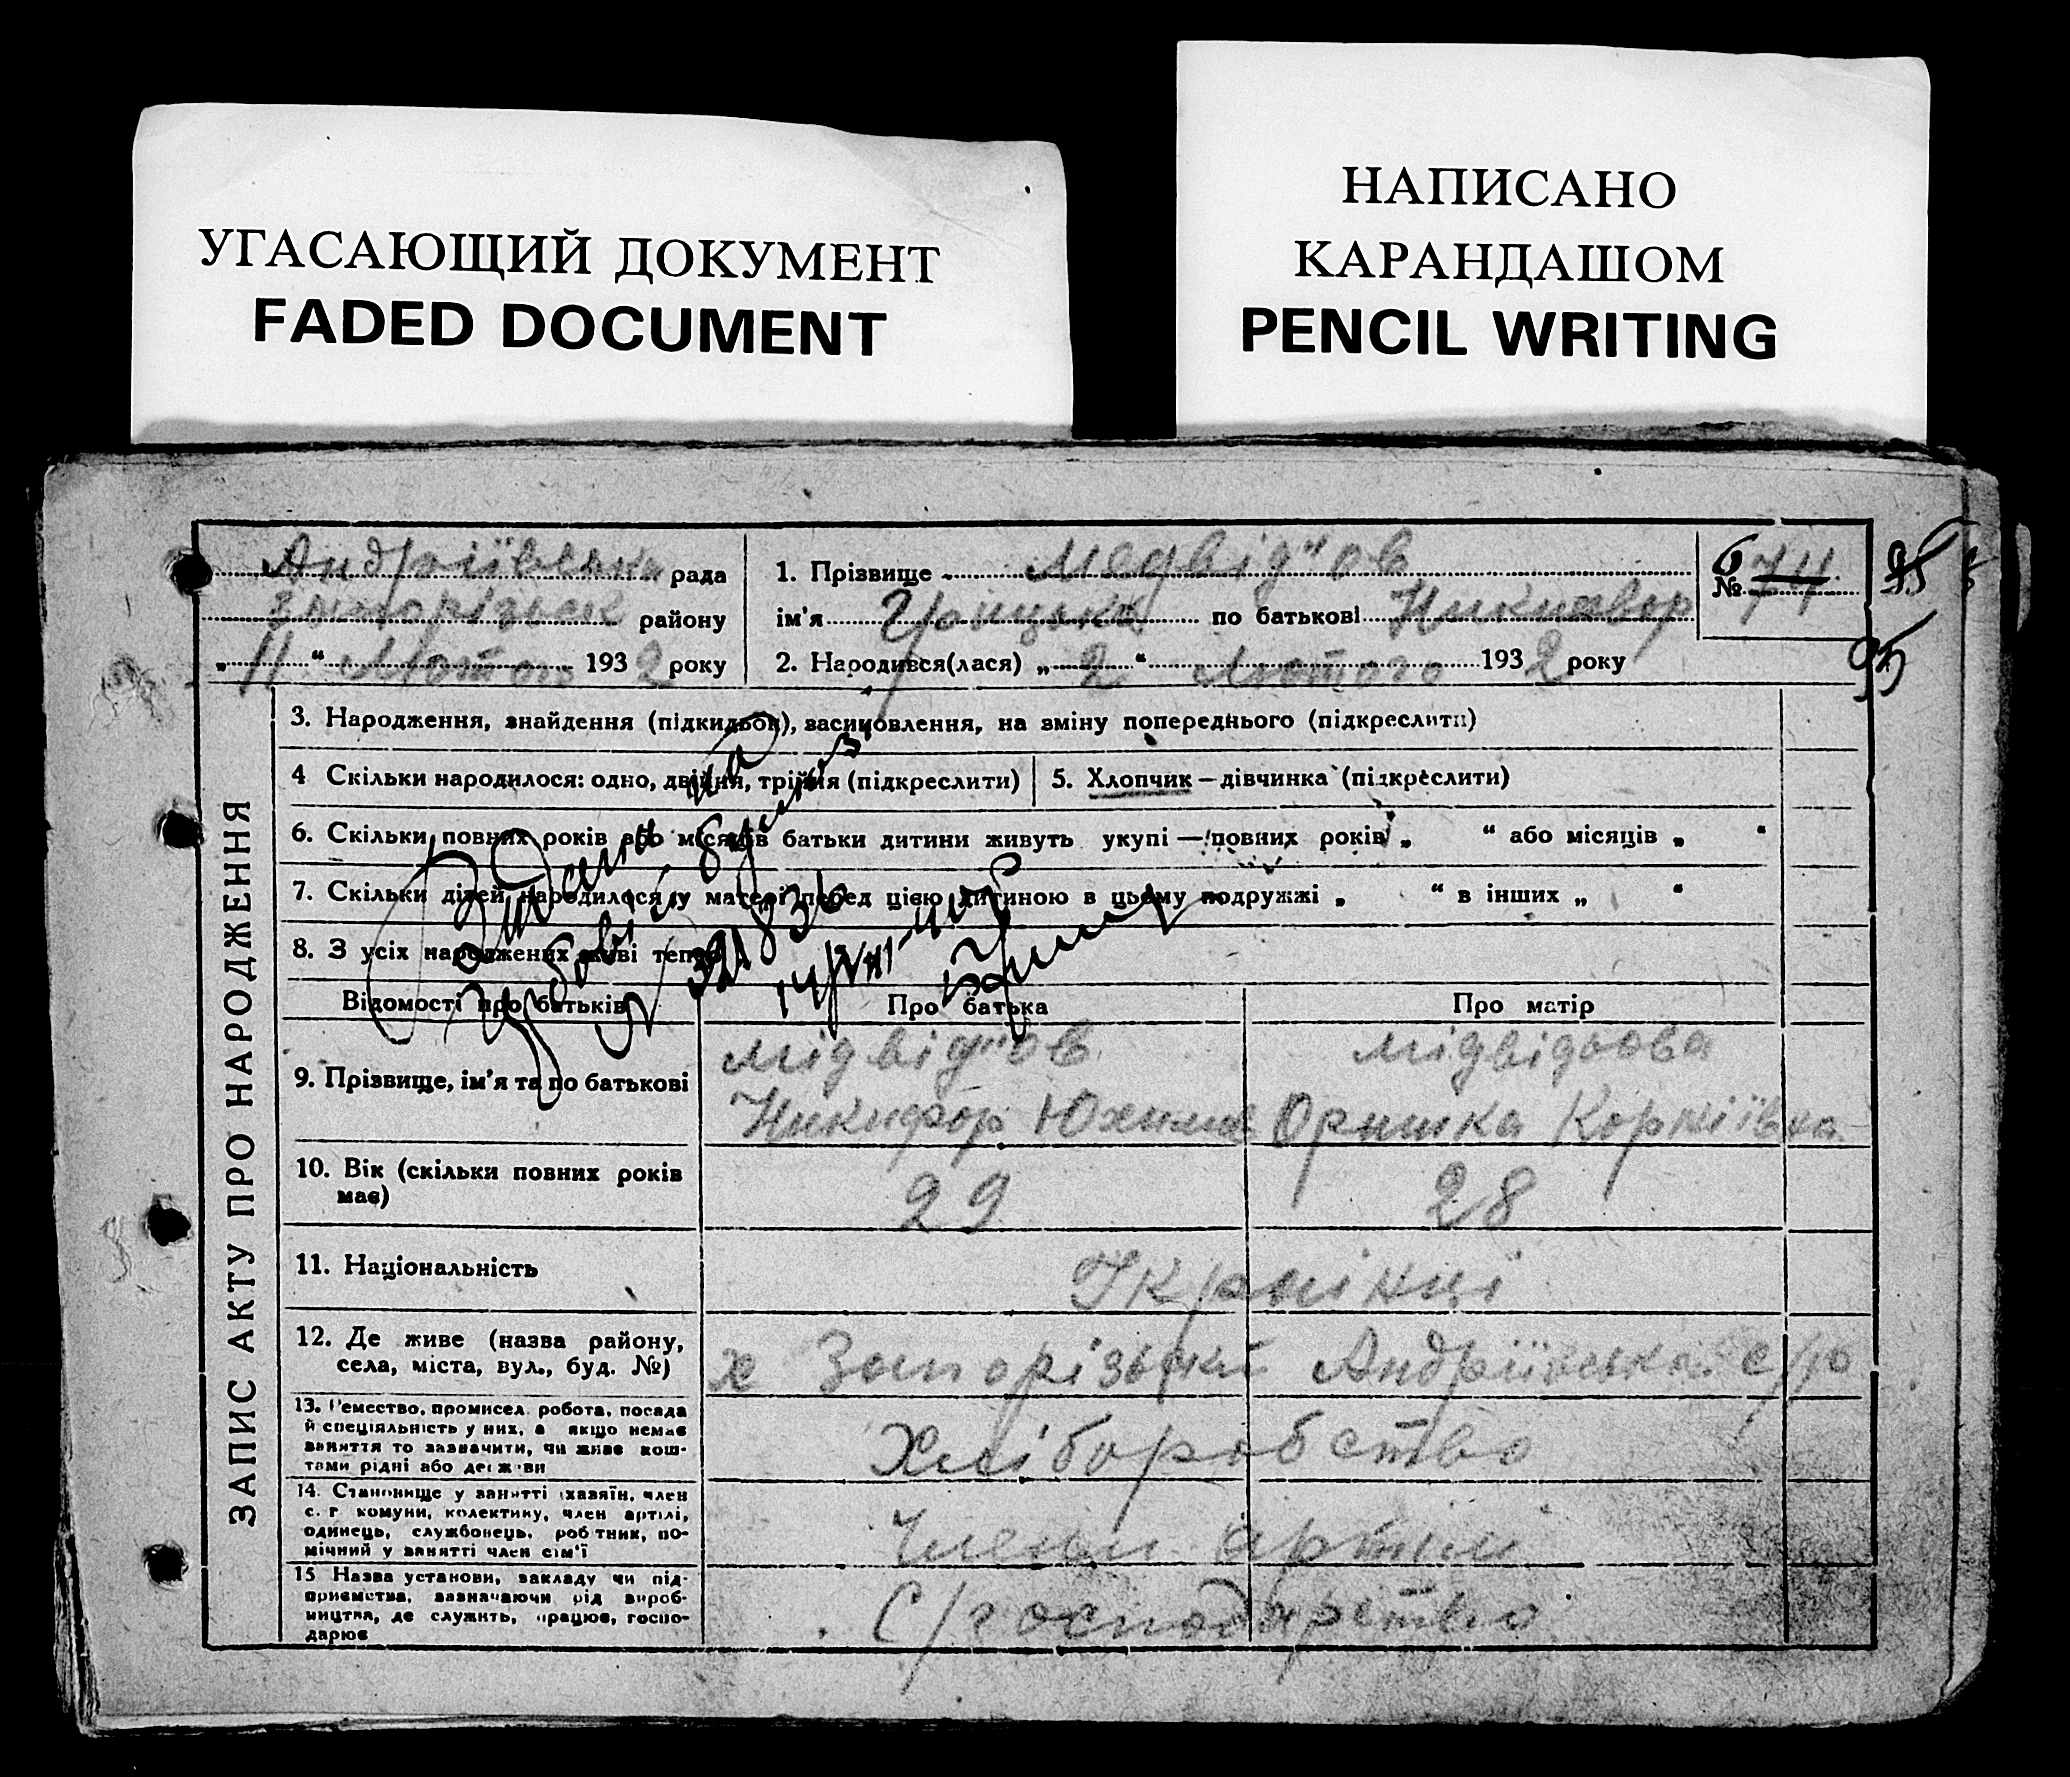 УГАСАЮЩИЙ ДОКУМЕНТ
FADED DOCUMENT
НАПИСАНО
КАРАНДАШОМ
PENCIL WRITING
Андріївська рада
району
„11“ Лютого 1932 року
1. Прізвище Медвід"ов
ім'я Грицько по батькові Никифор
2. Народився(лася) „2“ Лютого 1932 року
6
№ 74
95
ЗАПИС АКТУ ПРО НАРОДЖЕННЯ
3. Народження, знайдення (підкидьок), засиновлення, на зміну попереднього (підкреслити)
4 Скільки народилося: одно, двійня, трійня (підкреслити)
5. Хлопчик – дівчинка (підкреслити)
6. Скільки повних років або місяців батьки дитини живуть укупі — повних років „ “ або місяців „ “
7. Скільки дітей народилося у матері перед цією дитиною в цьому подружжі „ “ в інших „ “
8. З усіх народжених живі тепер
Відомості про батьків
Про батька
Про матір
9. Прізвище, ім'я та по батькові
Мідвід"ов
Никифор Юхим
Мідвідьова
Оришка Корніївна
10. Вік (скільки повних років має)
29
28
11. Національність
Українці
12. Де живе (назва району,
села, міста, вул., буд. №)
х Запорізький Андріївська с/р
13. Ремество, промисел, робота, посада
й спеціяльність у них, а якщо немає
заняття то зазначити, чи живе кош-
тами рідні або держави
Хліборобство
14. Становище у занятті (хазяїн, член
с. г комуни, колективу, член артілі,
одинець, службовець, робітник, по-
мічний у занятті член сім'ї
Члени артілі
15 Назва установи, закладу чи під-
приємства, зазначаючи рід вироб-
ництва, де служить, працює, госпо-
дарює
С/господарство